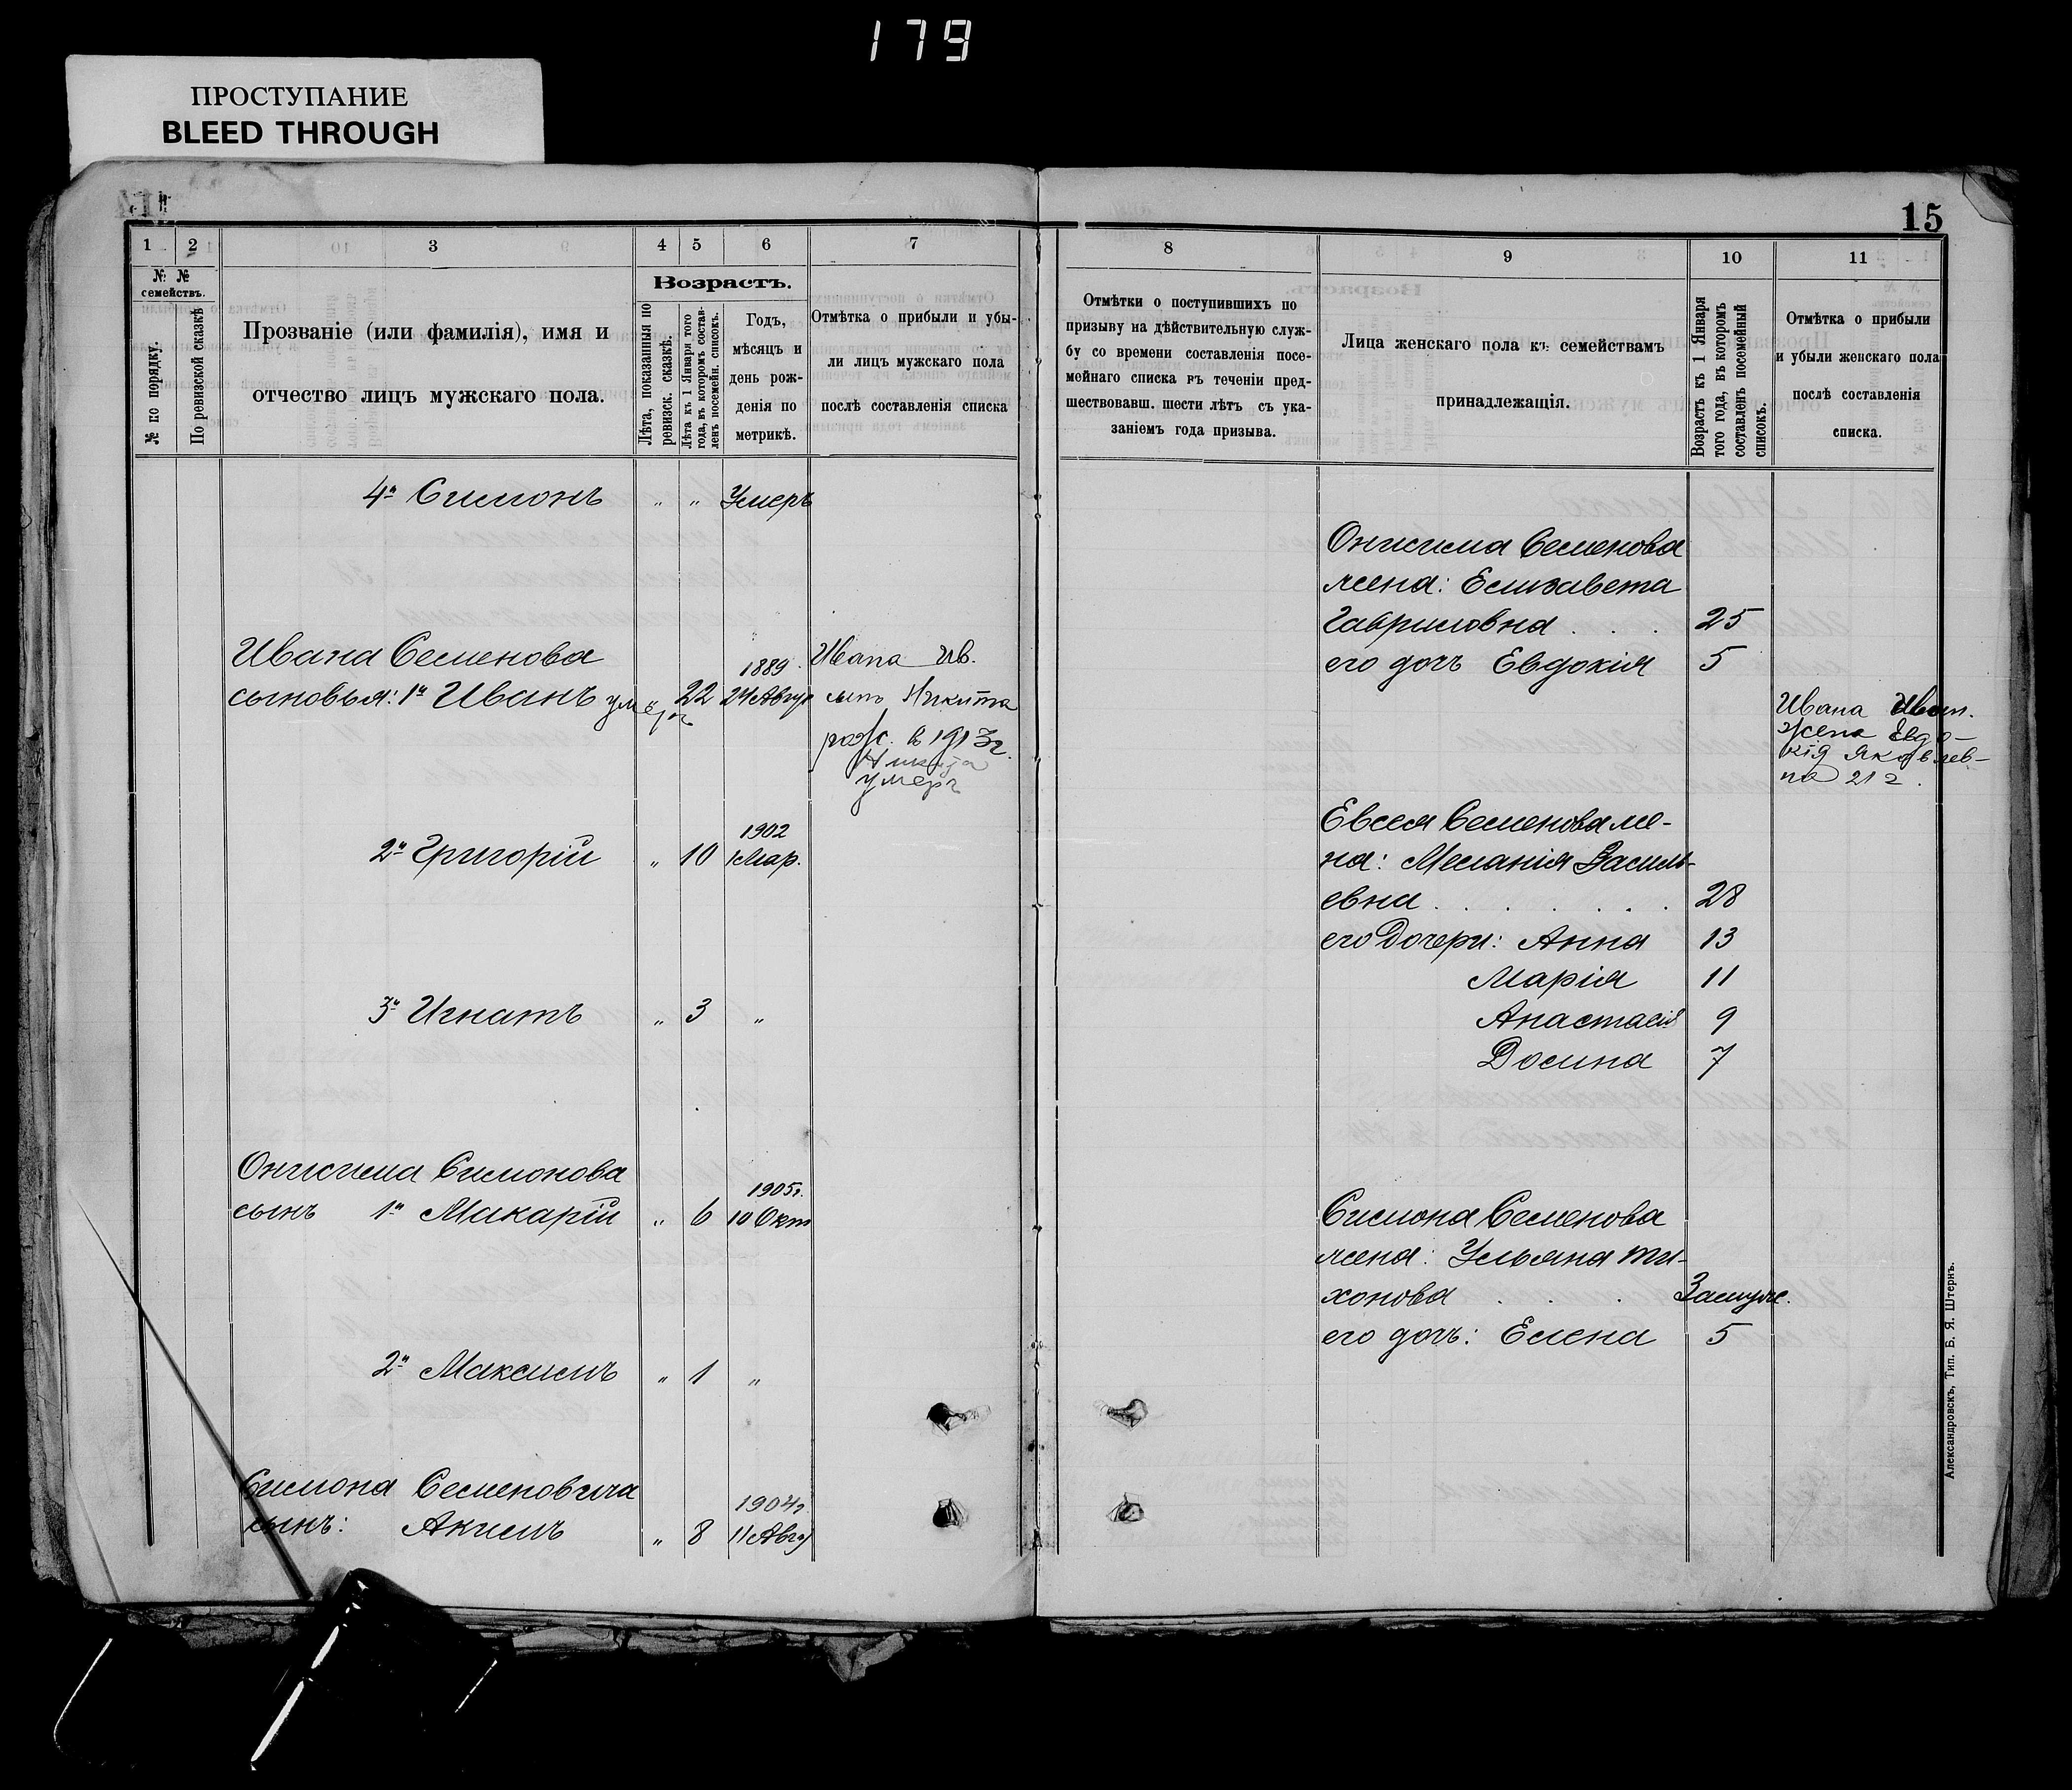 179
ПРОСТУПАНИЕ
BLEED THROUGH
15
1 2 3 4 5 6 7
№ № семействъ.
№ по порядку.
По ревизской сказкѣ
Прозваніе (или фамилія), имя и
отчество лицъ мужскаго пола.
Возрастъ.
Лѣта, показанныя по
ревизск. сказкѣ.
Лѣта къ 1 Января того
года, въ которомъ состав-
ленъ посемейн. списокъ.
Годъ,
мѣсяцъ и
день рож-
денія по
метрикѣ.
Отмѣтка о прибыли и убы-
ли лицъ мужскаго пола
послѣ составленія списка
4й Симонъ " " Умеръ
Ивана Семенова
сыновья: 1й Иванъ умеръ 22 1889 24 Авгус
Ивана Ив.
сынъ Никита
рож. в 1913 г.
Никита
умеръ
2й Григорій " 10 1902 1 Мар.
3й Игнатъ " 3 "
Онисима Симонова
сынъ 1й Макарій " 6 1905 г. 10 Окт
2й Максимъ " 1 "
Симона Семеновича
сынъ: Акимъ " 8 1904 г. 11 Авгу
8 9 10 11
Отмѣтки о поступившихъ по
призыву на дѣйствительную служ-
бу со времени составленія посе-
мейнаго списка въ теченіи пред-
шествовавш. шести лѣтъ съ ука-
заніемъ года призыва.
Лица женскаго пола къ семействамъ
принадлежащія.
Возрастъ къ 1 Января
того года, въ которомъ
составленъ посемейный
списокъ.
Отмѣтка о прибыли
и убыли женскаго пола
послѣ составленія
списка.
Онисима Семенова
жена: Елизавета
Гавриловна . . . 25
его дочь Евдокія 5
Ивана Иван.
жена Евдо-
кія Яковлев-
на 21 г.
Евсея Семенова же-
на: Меланія Василь-
евна . . . . . . 28
его Дочери: Анна 13
Марія 11
Анастасія 9
Домна 7
Симона Семенова
жена: Ульяна Ти-
хонова . . . Замуже.
его дочь: Елена 5
Александровскъ, Тип. Б. Я. Штернъ.